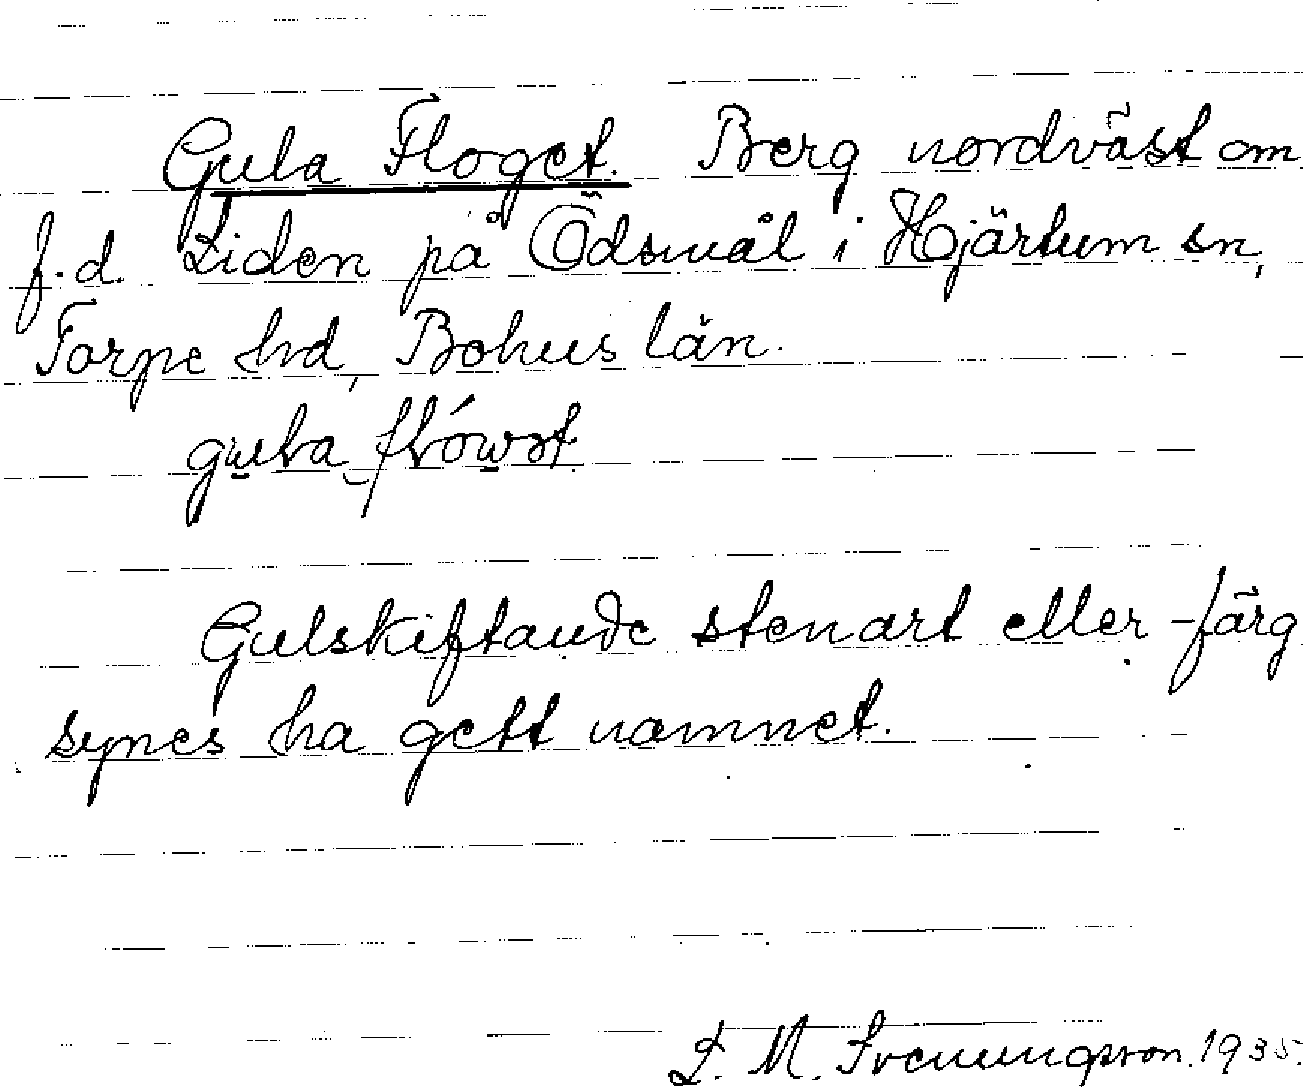 Gula Floget. Berg nordväst om
f.d. Liden på Ödsmål i Hjärtum sn,
Torpe hd, Bohus län.
Gulskiftande stenart eller -färg
synes ha gett namnet.
L. M. Svenungsson. 1935.